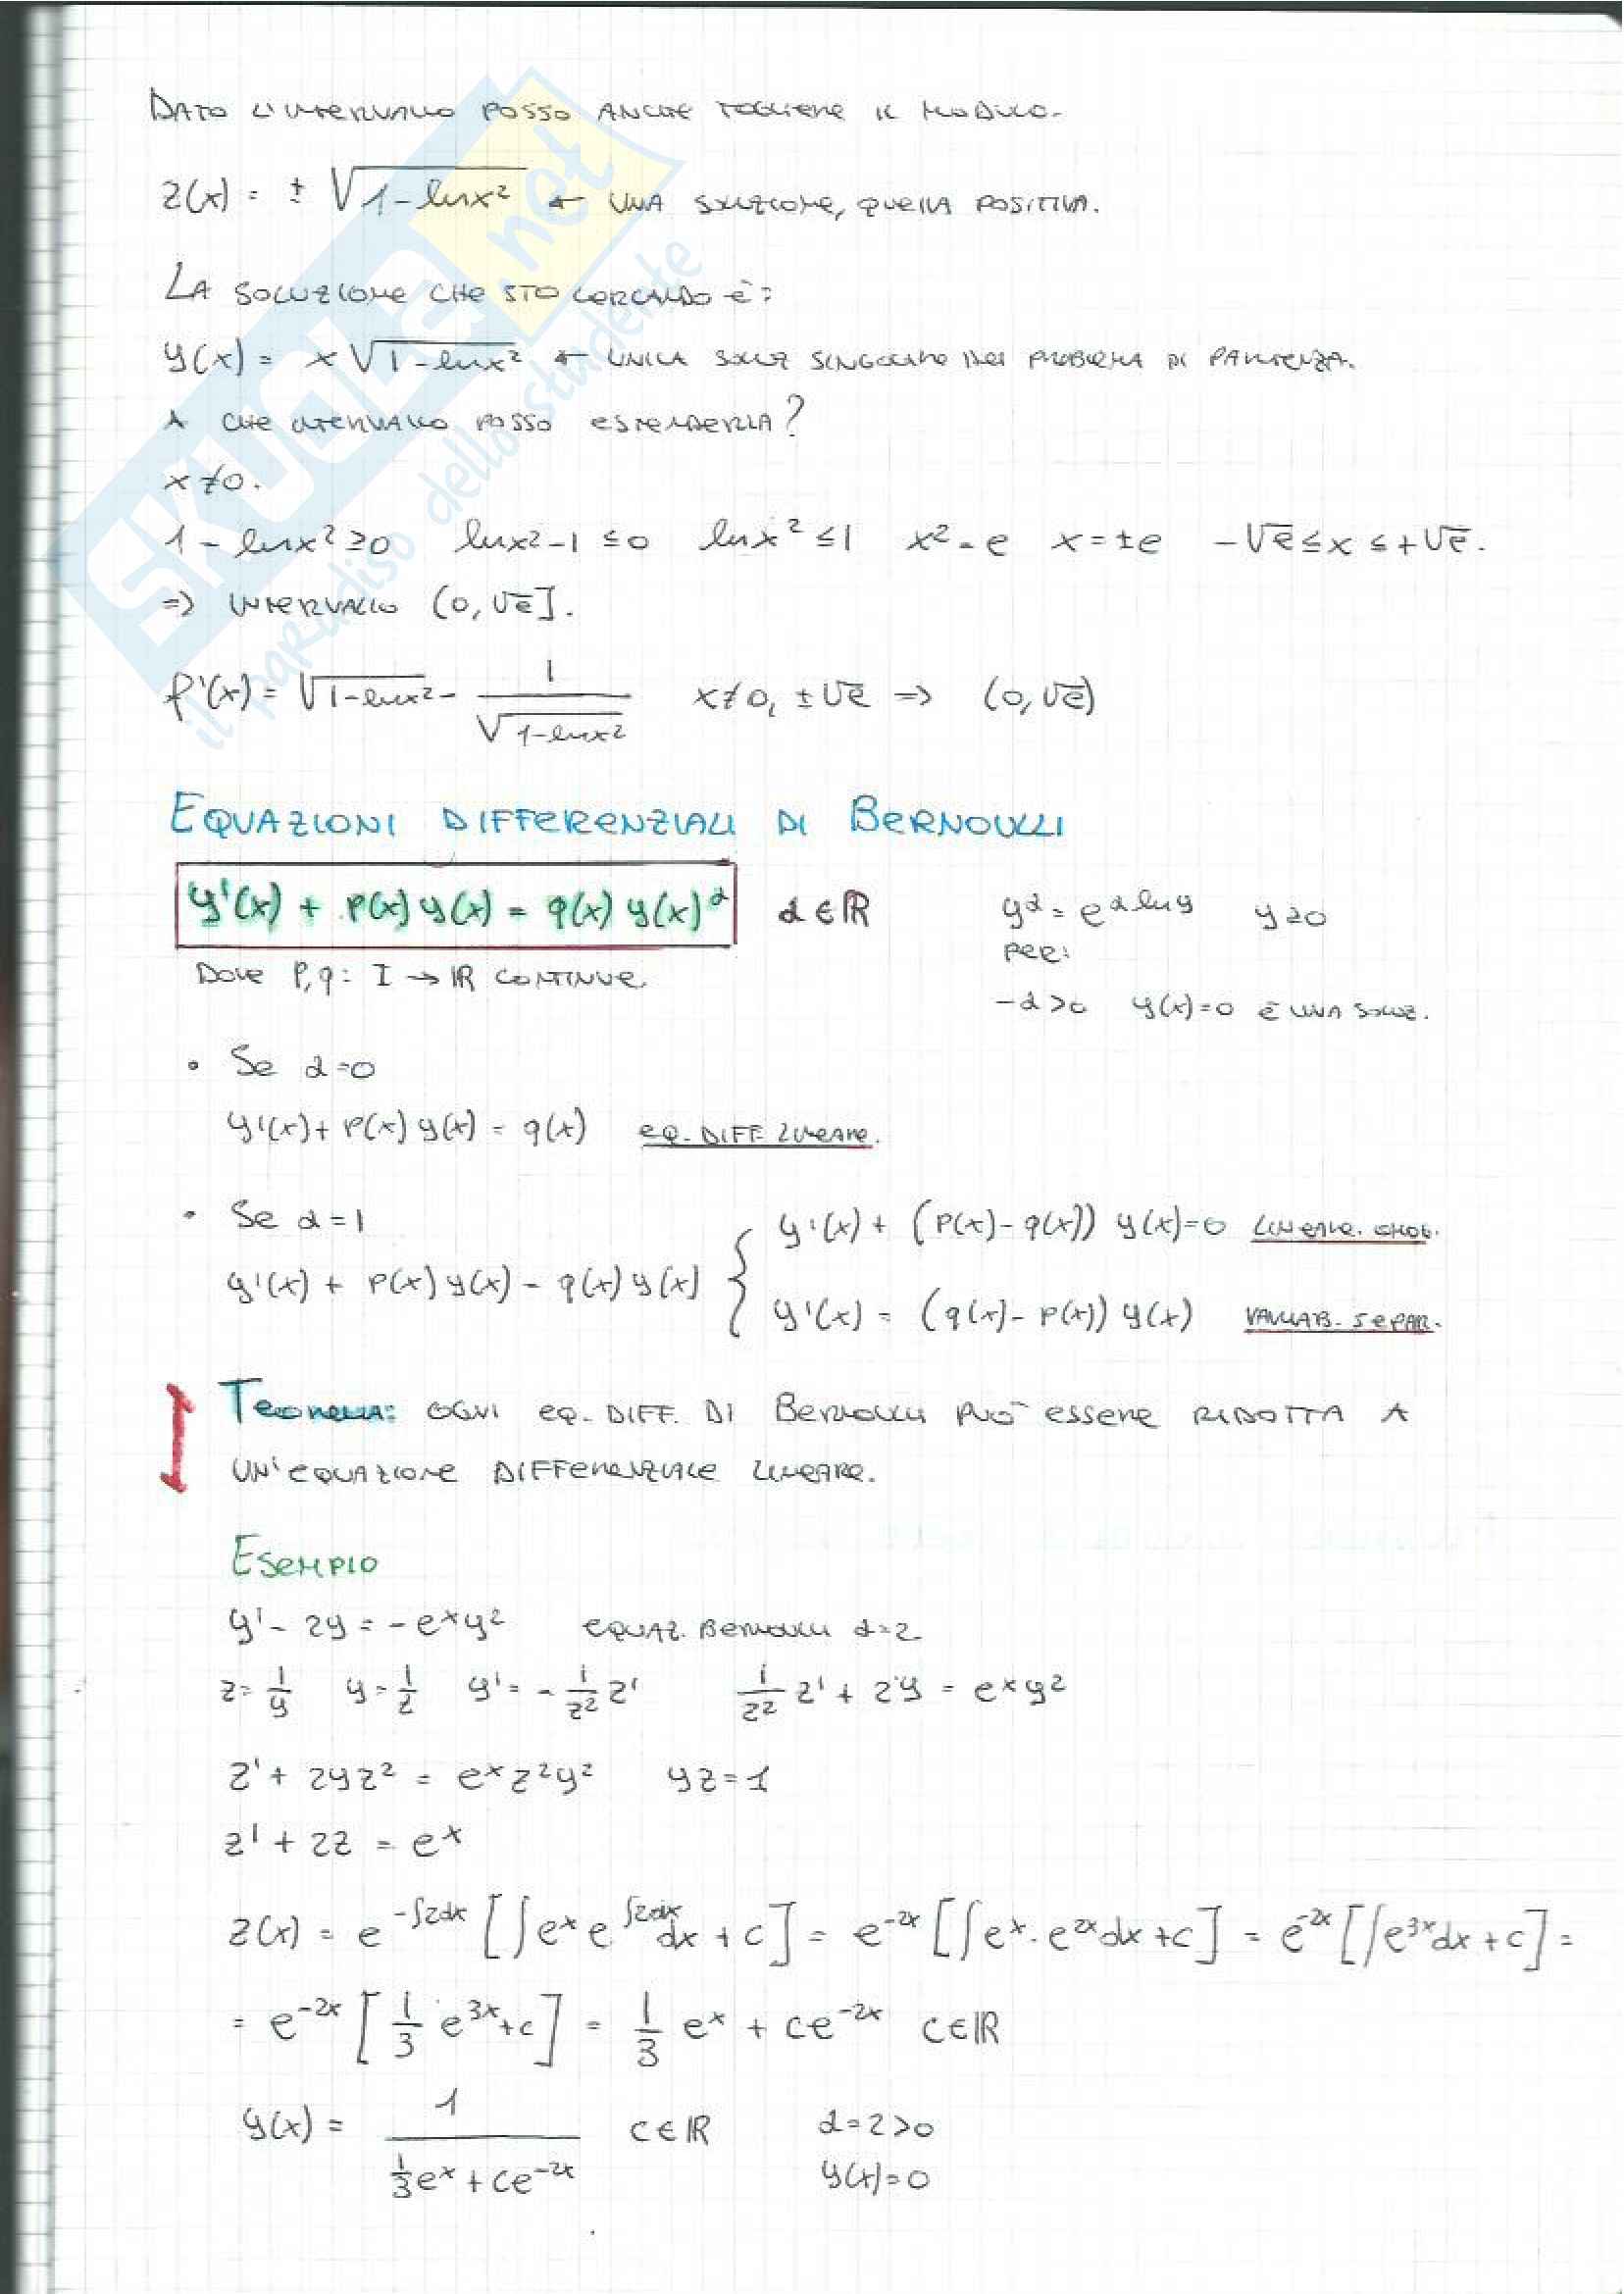 DATO L'INTERVALLO POSSO ANCHE TOGLIERE IL MODULO.
z(x) = ± √(1-lnx²) ← UNA SOLUZIONE, QUELLA POSITIVA.
LA SOLUZIONE CHE STO CERCANDO È:
y(x) = x √(1-lnx²) ← UNICA SOLUZ SINGOLARE DEL PROBLEMA DI PARTENZA.
A CHE INTERVALLO POSSO ESTENDERLA?
x≠0.
1-lnx² ≥0 lnx²-1 ≤0 lnx² ≤1 x²=e x=±e -√e ≤ x ≤ +√e.
=> INTERVALLO (0,√e].
f'(x) = √(1-lnx²) - 1/√(1-lnx²) x≠0, ±√e => (0,√e)
EQUAZIONI DIFFERENZIALI DI BERNOULLI
y'(x) + p(x) y(x) = q(x) y(x)^α α∈ℝ y^α = e^(α ln y) y≥0
DOVE P,q: I → ℝ CONTINUE.
PER:
-α>0 y(x)=0 È UNA SOLUZ.
• Se α=0
y'(x) + P(x) y(x) = q(x) EQ. DIFF. LINEARE.
• Se α=1
y'(x) + P(x) y(x) = q(x) y(x) { y'(x) + (P(x)-q(x)) y(x)=0 LINEARE. OMOG.
y'(x) = (q(x)-P(x)) y(x) VARIAB. SEPAR.
TEOREMA: OGNI EQ. DIFF. DI BERNOULLI PUÒ ESSERE RIDOTTA A
UN'EQUAZIONE DIFFERENZIALE LINEARE.
ESEMPIO
y' - 2y = -e^x y² EQUAZ. BERNOULLI α=2
z = 1/y y = 1/z y' = - 1/z² z' 1/z² z' + 2y = e^x y²
z' + 2yz² = e^x z² y² yz=1
z' + 2z = e^x
z(x) = e^(-∫2dx) [∫e^x e^(∫2dx) dx + c] = e^(-2x) [∫e^x · e^(2x) dx + c] = e^(-2x) [∫e^(3x) dx + c] =
= e^(-2x) [1/3 e^(3x) + c] = 1/3 e^x + ce^(-2x) c∈ℝ
y(x) = 1/(1/3 e^x + ce^(-2x)) c∈ℝ α=2>0
y(x)=0
SKUOLA.net
il paradiso dello studente